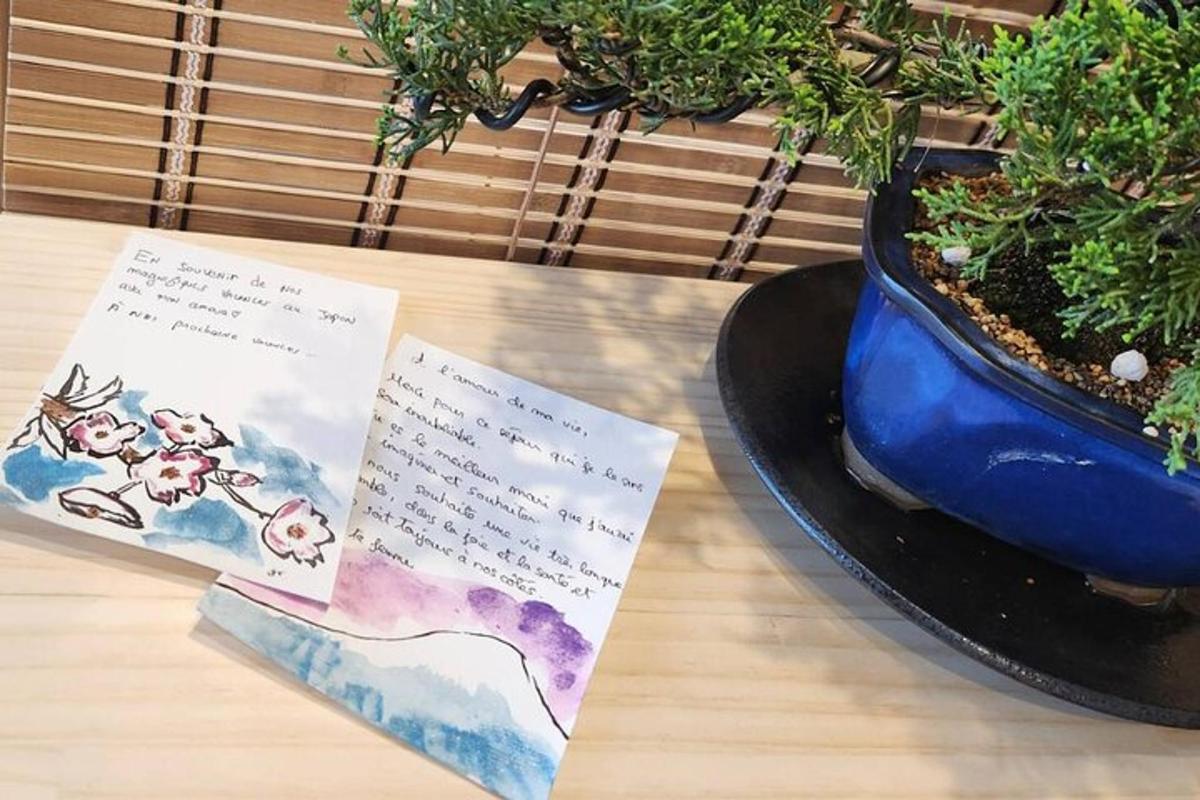 EN SOUVENIR de NOS
magnifiques VACANCES au JAPON
avec mon amour♡
À NOS prochaine vacances...
A l'amour de ma vie,
Merci pour ce séjour qui je le sais
sera inoubliable.
es le meilleur mari que j'aurai
imaginer et souhaiter.
nous souhaite une vie très longue
dans la joie et la santé et
soit toujours à nos côtés.
ta femme